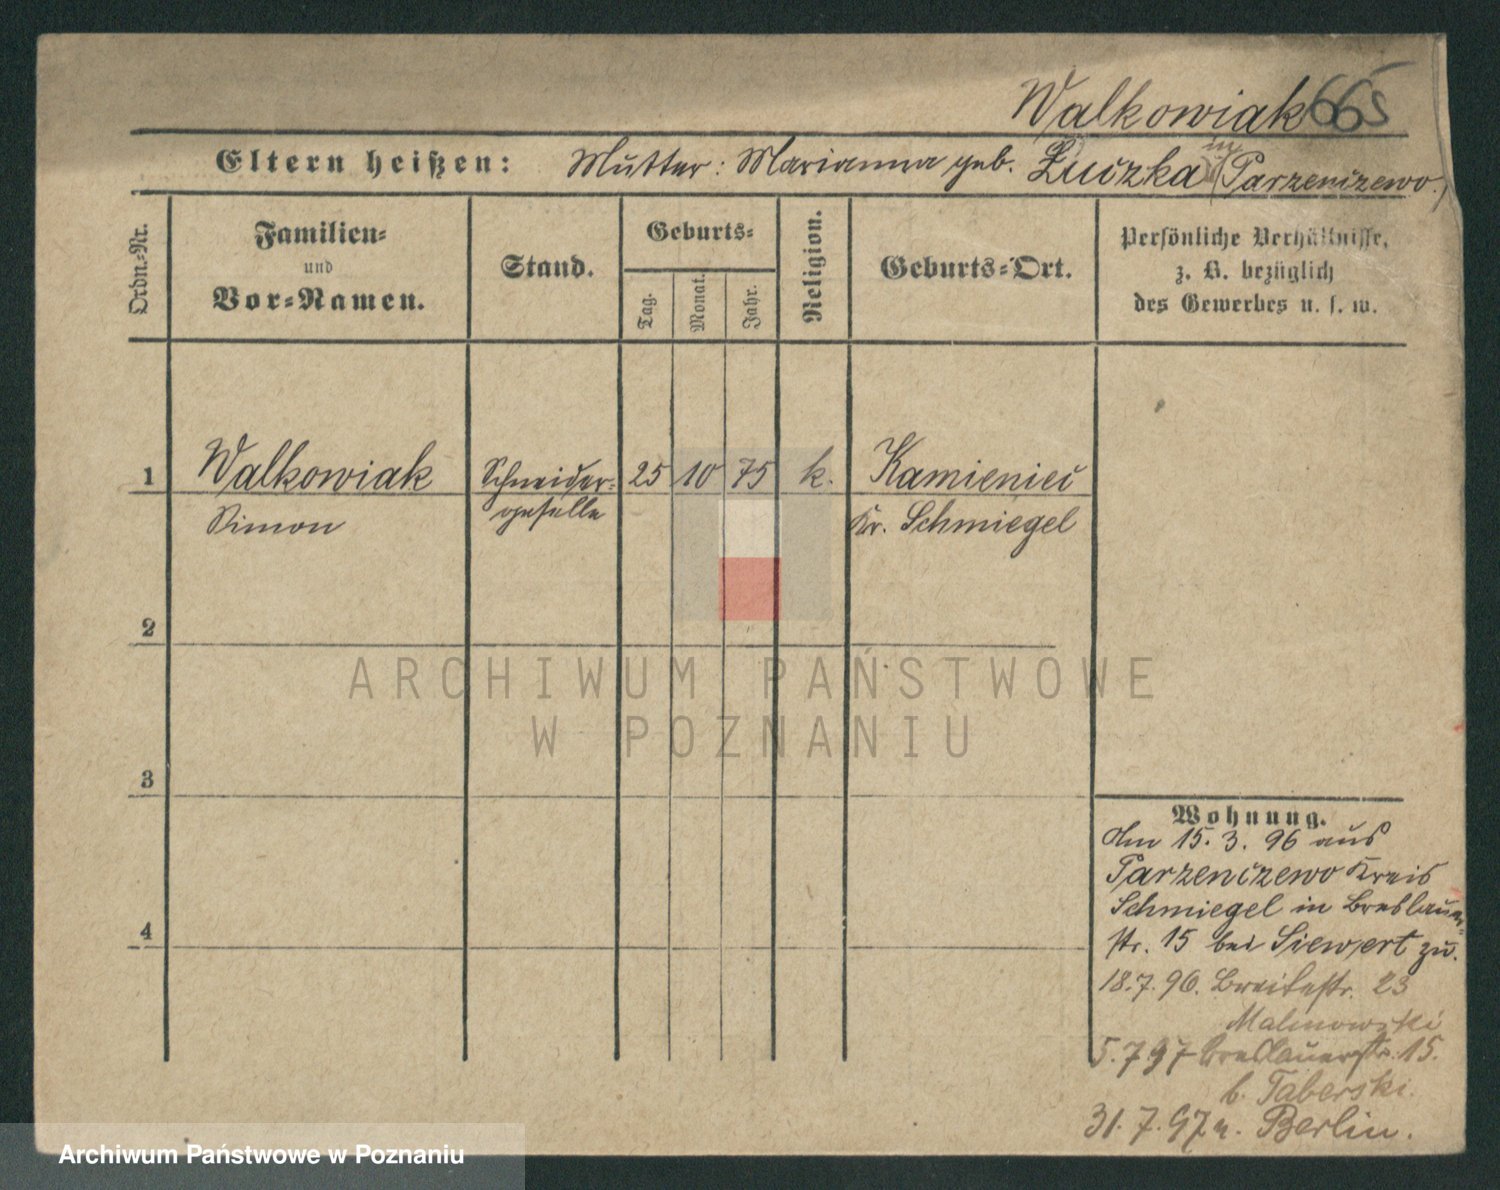 Walkowiak 665
Eltern heißen: Mutter: Marianna geb. Łuczka (in Parzenczewo.)
Ordn.-Nr.
Familien-
und
Vor-Namen.
Stand.
Geburts-
Tag.
Monat.
Jahr.
Religion.
Geburts-Ort.
Persönliche Verhältnisse,
z. B. bezüglich
des Gewerbes u. s. w.
1 Walkowiak Schneider- 25 10 75 k. Kamieniec
Simon geselle Kr. Schmiegel
2
ARCHIWUM PAŃSTWOWE
W POZNANIU
3
Wohnung.
Am 15. 3. 96 aus
Parzenczewo Kreis
Schmiegel in Breslauer-
str. 15 bei Siewert zu.
4
18.7.96. Breitestr. 23
Malinowski
5.7 97 Breslauerstr. 15.
b. Taberski.
31. 7. 97 n. Berlin.
Archiwum Państwowe w Poznaniu